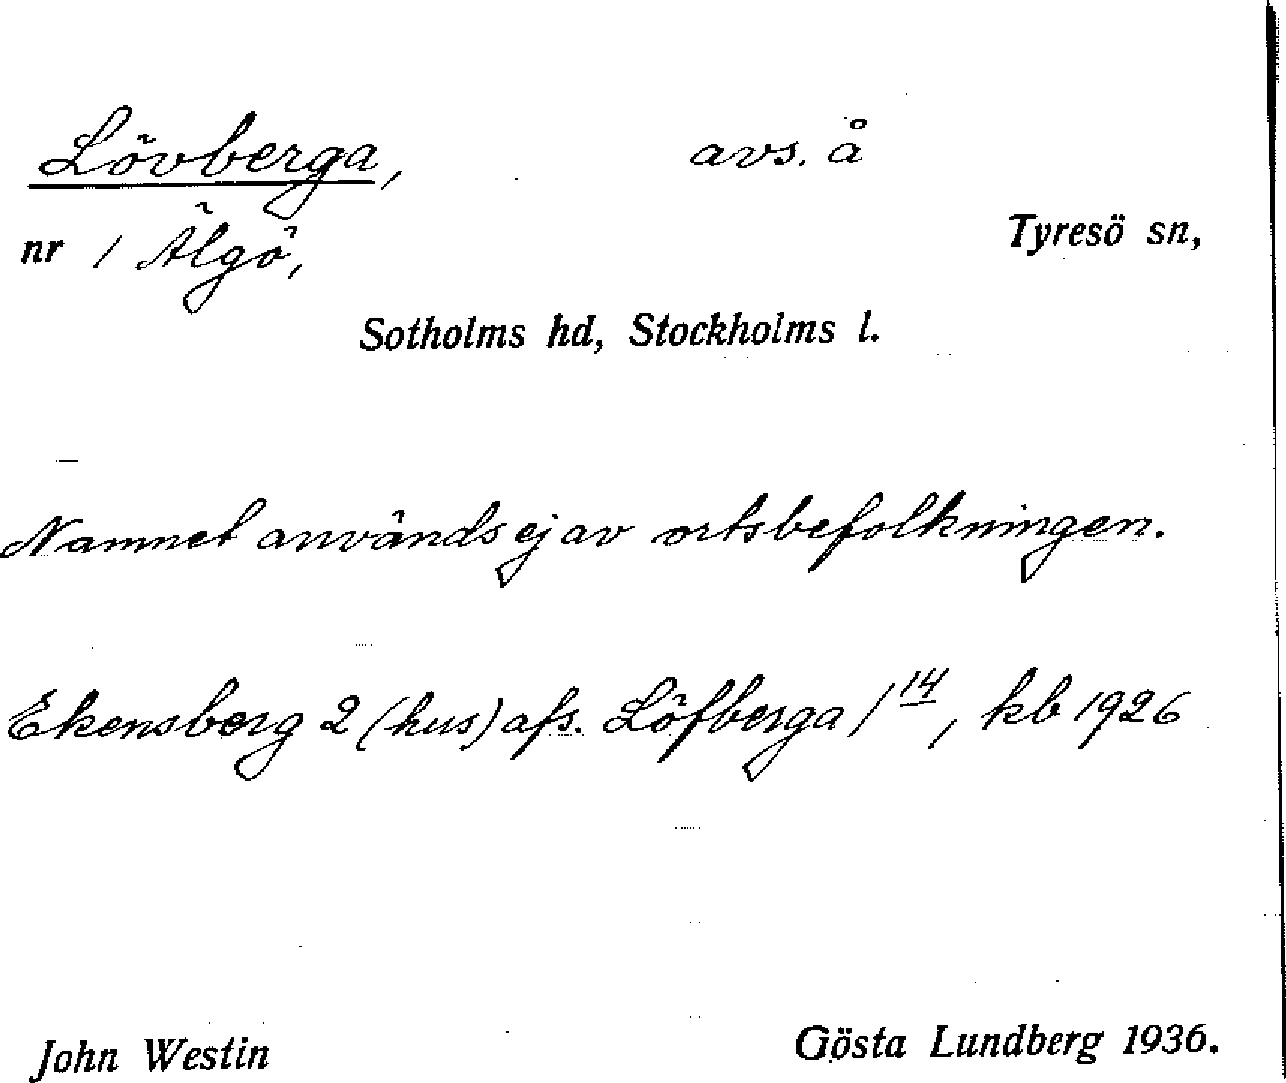 Lövberga, avs. å
nr 1 Älgö, Tyresö sn,
Sotholms hd, Stockholms l.
Namnet används ej av ortsbefolkningen.
Ekensberg 2 (hus) afs. Löfberga 1 14, kb 1926
John Westin Gösta Lundberg 1936.